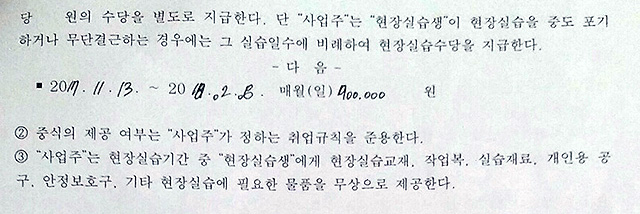 당 원의 수당을 별도로 지급한다. 단 “사업주”는 “현장실습생”이 현장실습을 중도 포기
하거나 무단결근하는 경우에는 그 실습일수에 비례하여 현장실습수당을 지급한다.
- 다 음 -
▪ 2017. 11. 13. ~ 2018. 02. 매월(일) 900.000 원
② 중식의 제공 여부는 “사업주”가 정하는 취업규칙을 준용한다.
③ “사업주”는 현장실습기간 중 “현장실습생”에게 현장실습교재, 작업복, 실습재료, 개인용 공
구, 안정보호구, 기타 현장실습에 필요한 물품을 무상으로 제공한다.